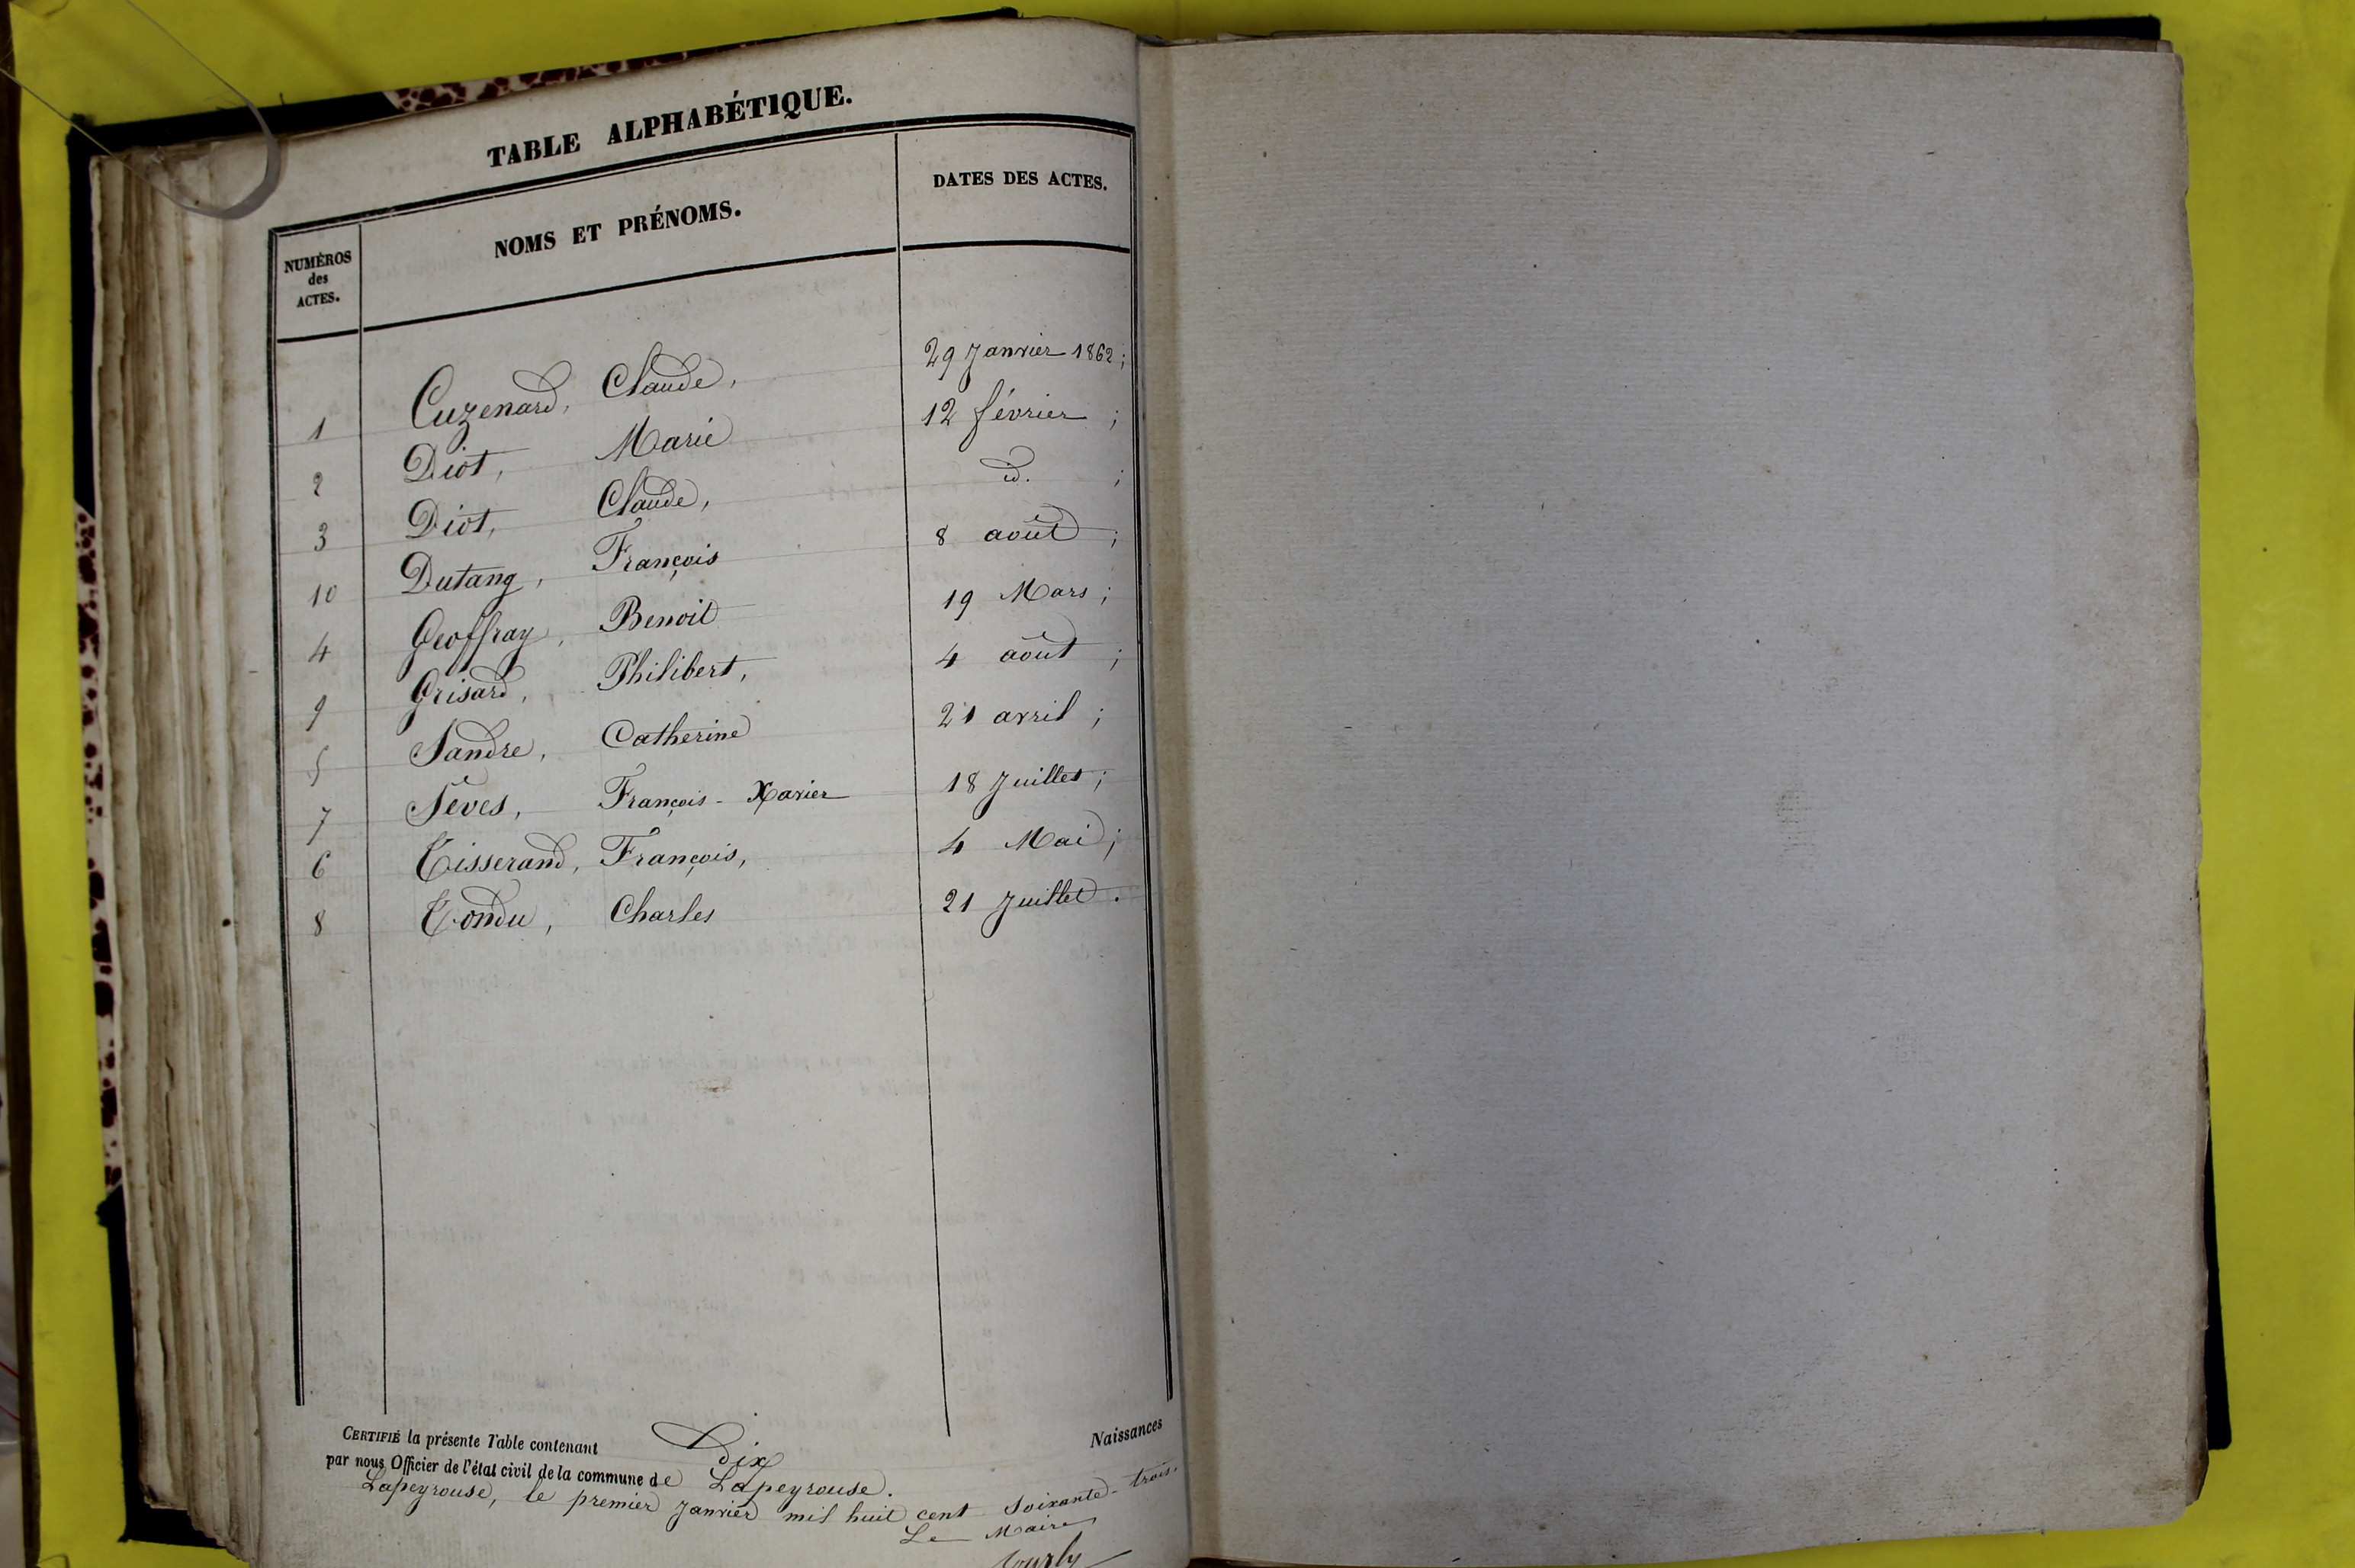 TABLE ALPHABÉTIQUE.
NUMÉROS des ACTES. NOMS ET PRÉNOMS. DATES DES ACTES.
1 Cuzenard, Claude, 29 Janvier 1862;
2 Diot, Marie 12 février ;
3 Diot, Claude, id. ;
10 Dutang, François 8 août ;
4 Geoffray, Benoit 19 Mars ;
9 Grisard, Philibert, 4 août ;
5 Sandre, Catherine 21 avril ;
7 Sêves, François-Xavier 18 Juillet ;
6 Tisserand, François, 4 Mai ;
8 Tondu, Charles 21 Juillet .
CERTIFIÉ la présente Table contenant Dix Naissances
par nous Officier de l'état civil de la commune de Lapeyrouse.
Lapeyrouse, le premier Janvier mil huit cent soixante-trois.
Le Maire